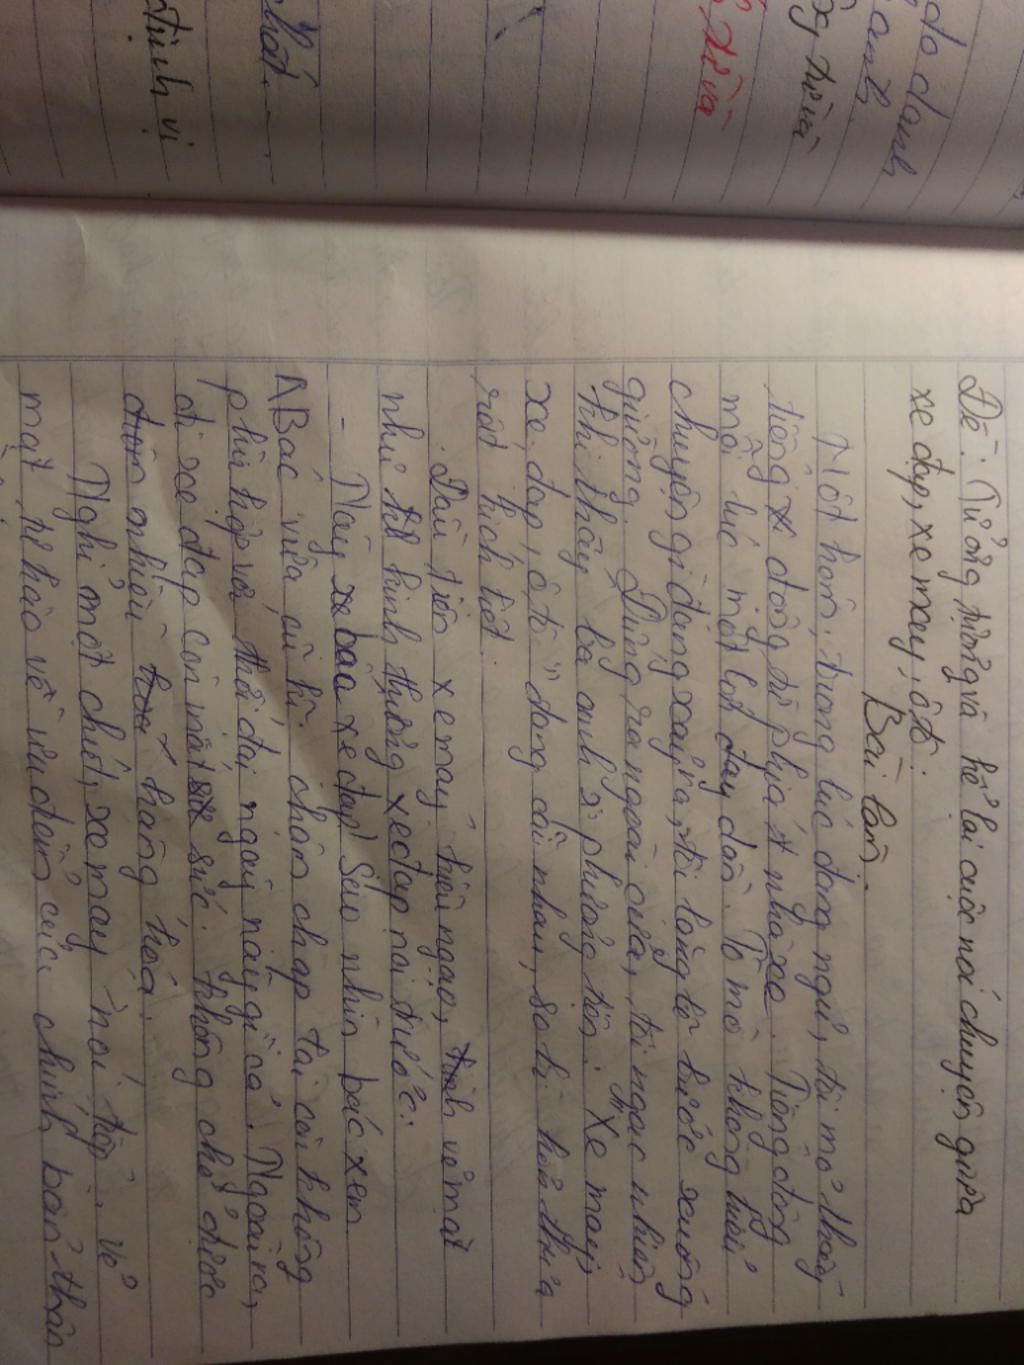 do danh
anh
xy từ và
từ và
chất.
định vị
Đề: Tưởng tượng và kể lại cuộc nói chuyện giữa
xe đạp, xe máy, ô tô.
Bài làm.
Một hôm, trong lúc đang ngủ, tôi mơ thấy
tiếng x động từ phía t nhà xe. Tiếng động
mỗi lúc một lớn dần. Tò mò không biết
chuyện gì đang xảy ra, tôi bước xuống
giường. Đứng ra ngoài cửa, tôi ngạc nhiên
khi thấy ba anh phương tiện: Xe máy,
xe đạp, ô tô đang cãi nhau, so bì hơn thua
rất kịch liệt.
Đầu tiên xe máy kiêu ngạo, vẻ mặt
như hình thường xe đạp nói trước:
- Này xe bác xe đạp! Sao nhìn bác xem
Bác vừa cũ kĩ, chậm chạp lại còn không
phù hợp với thời đại ngày nay gì cả. Ngoài ra,
đi xe đạp còn mất sức, không chở được
nhiều hàng hóa.
Nghỉ một chút, xe máy nói tiếp. Vẻ
mặt tự hào về ưu điểm của chính bản thân